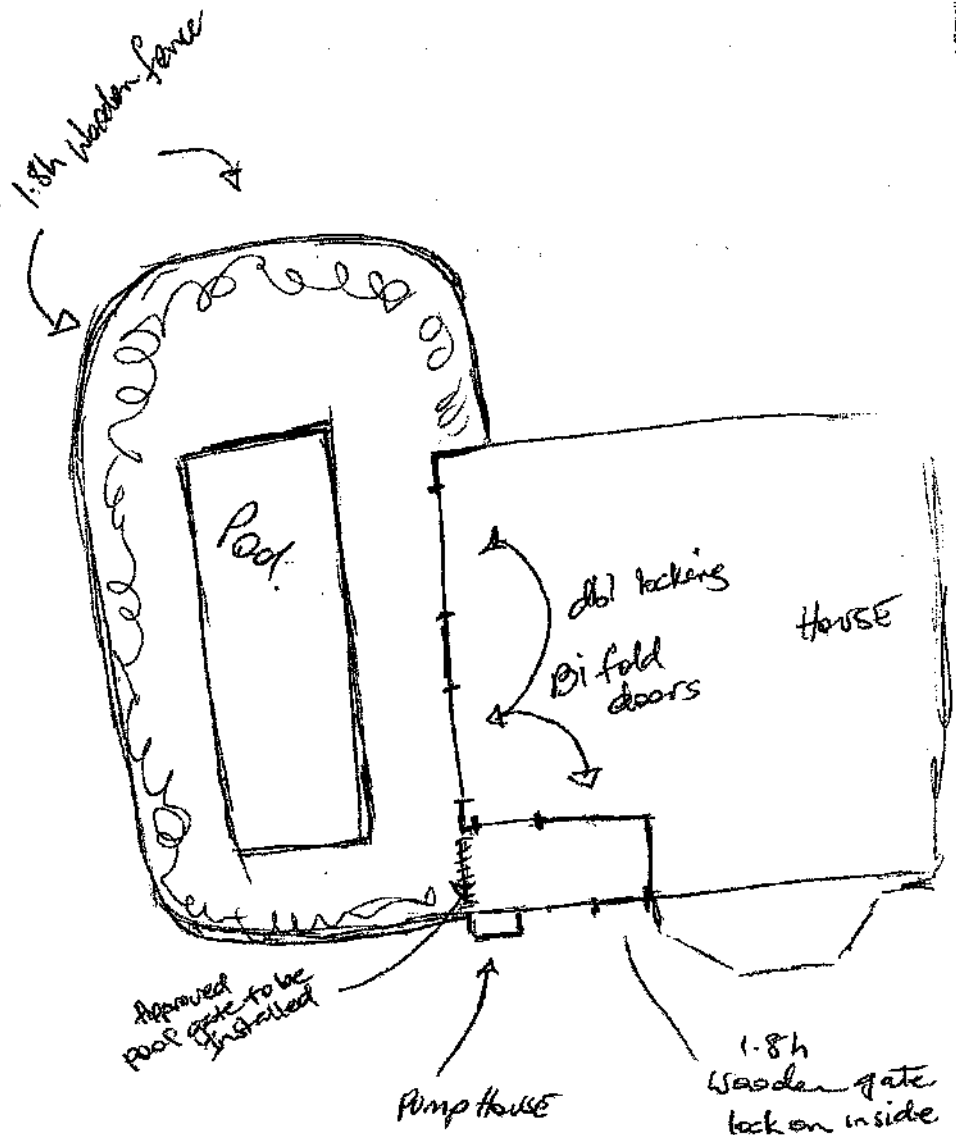 1.8h Wooden fence
Pool.
dbl locking
Bi fold
doors
HOUSE
Approved
pool gate to be
Installed
Pump HOUSE
1.8h
Wooden gate
lock on inside